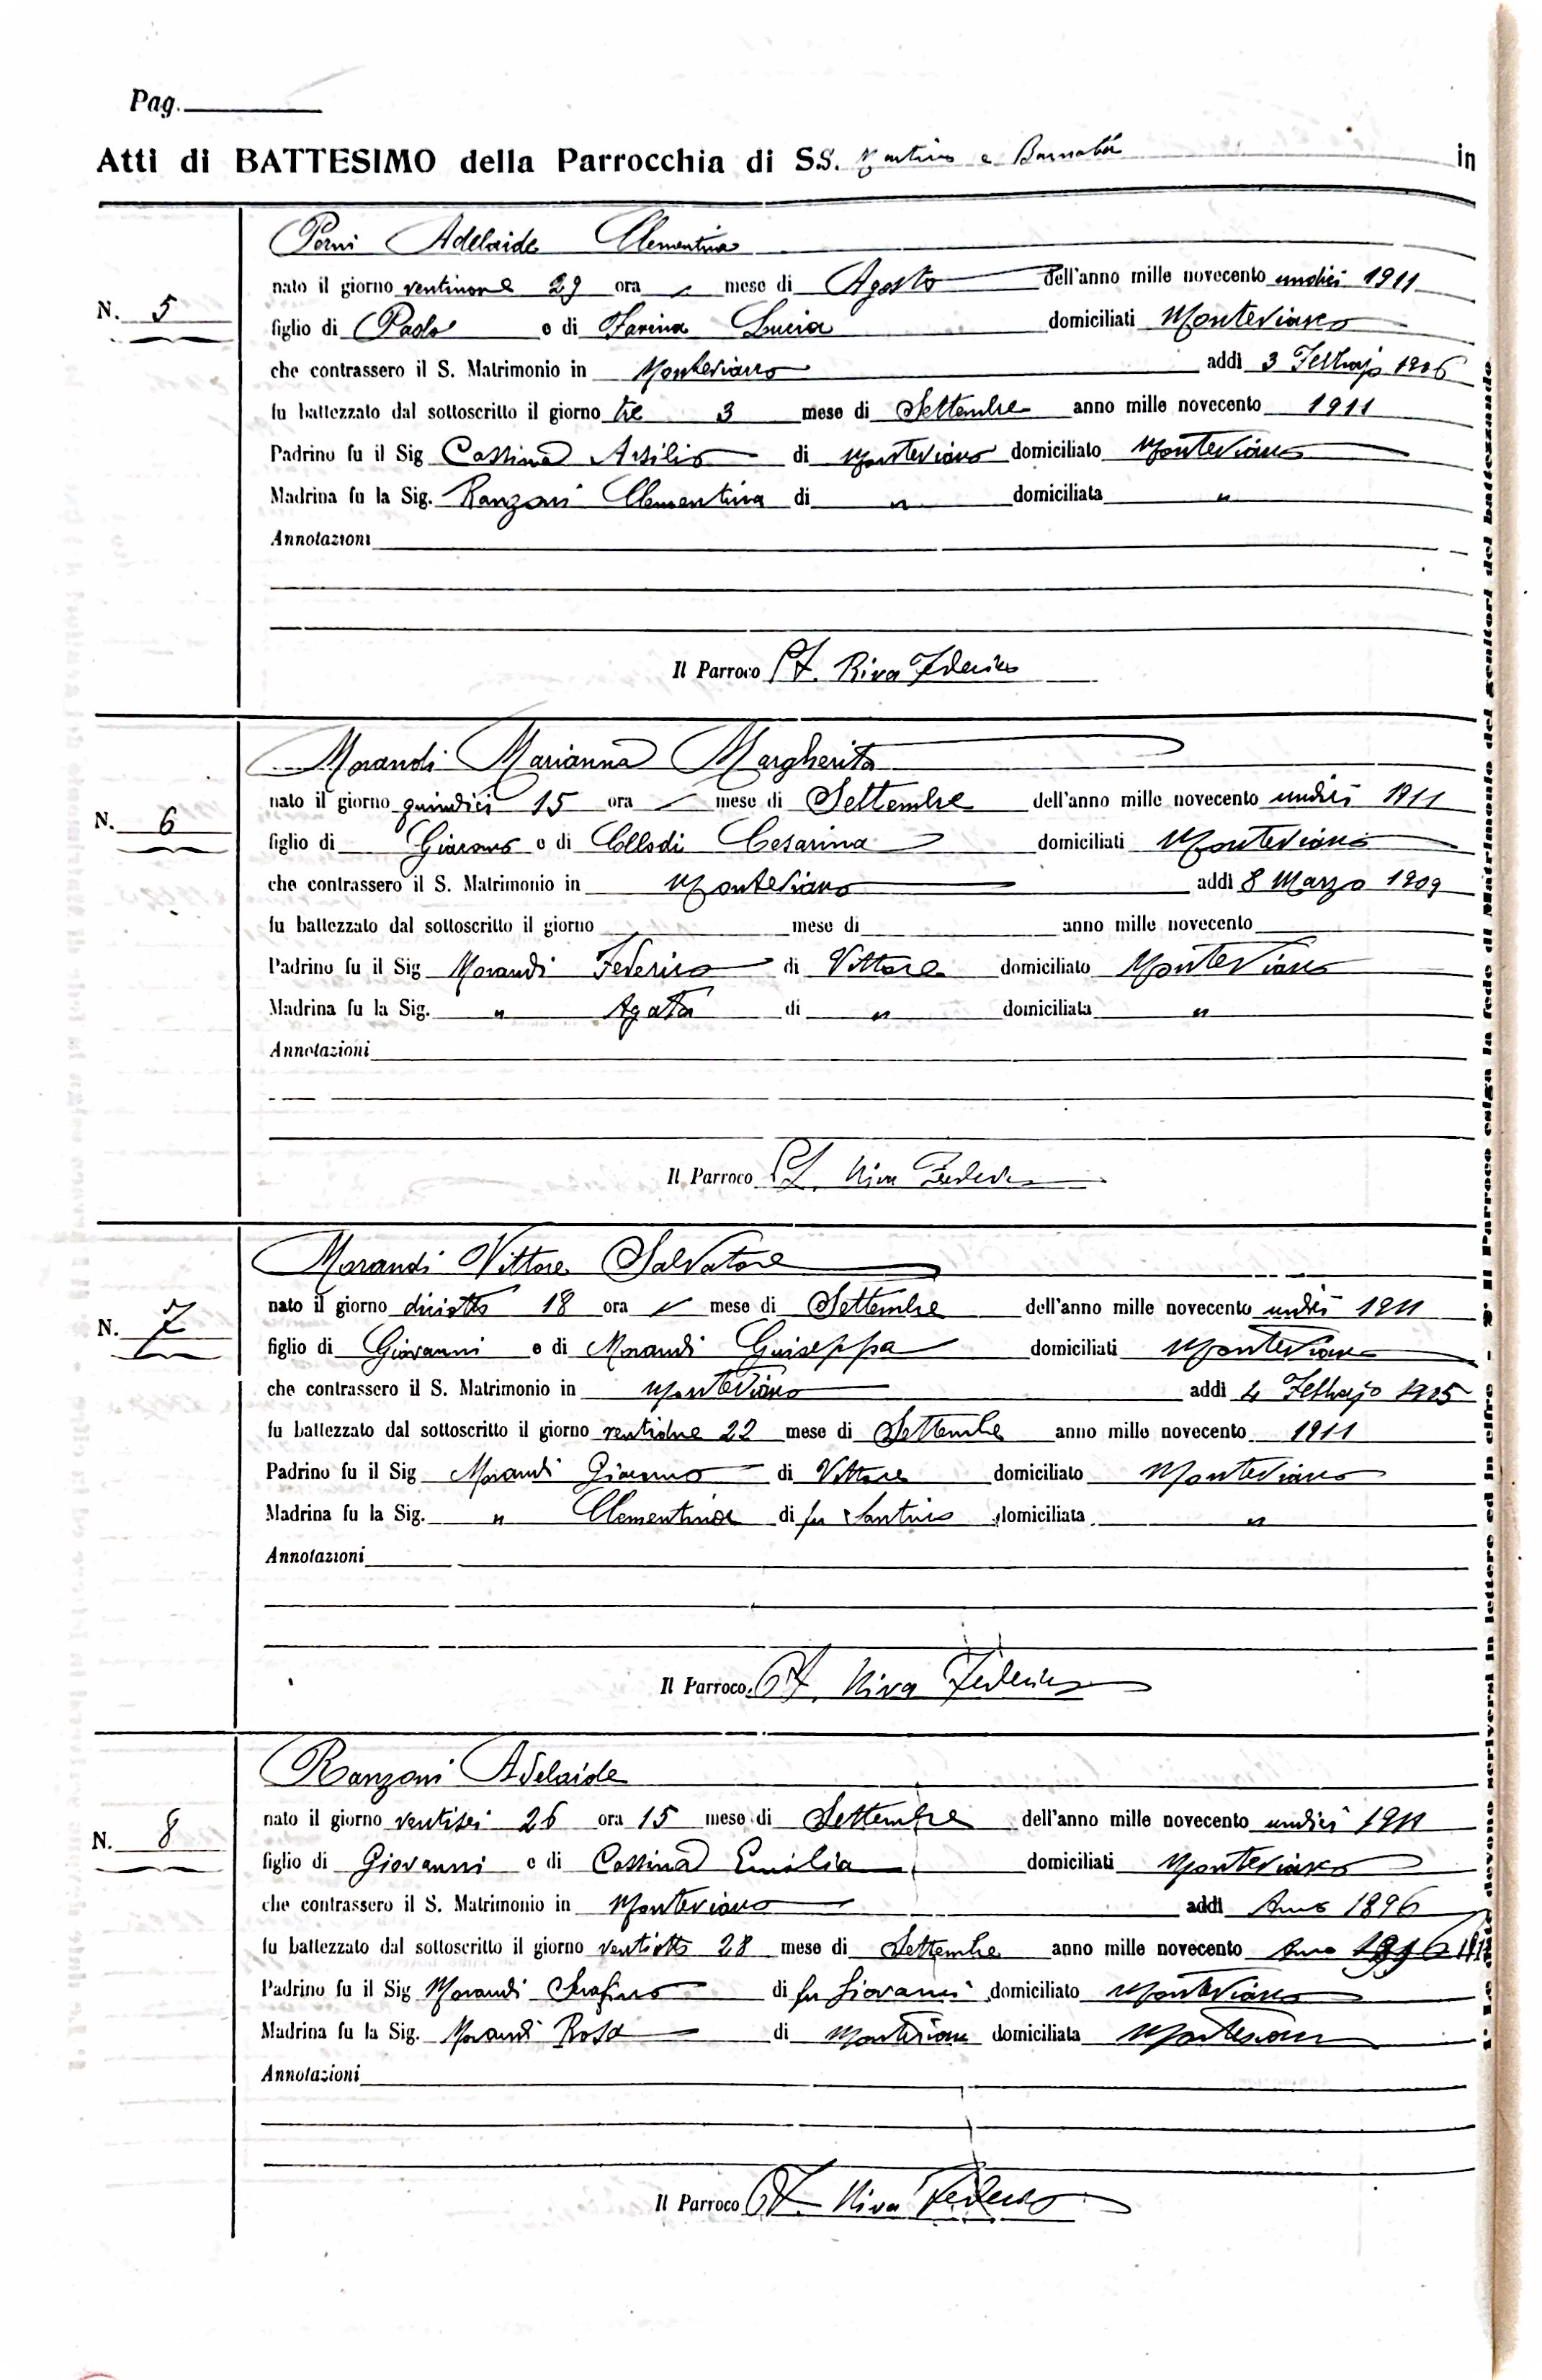 Pag.
Atti di BATTESIMO della Parrocchia di SS. Martino e Barnaba in
Perni Adelaide Clementina
N. 5
nato il giorno ventinove 29 ora mese di Agosto dell'anno mille novecento undici 1911
figlio di Paolo e di Farina Lucia domiciliati Monteviasco
che contrassero il S. Matrimonio in Monteviasco addì 3 Febbrajo 1906
fu battezzato dal sottoscritto il giorno tre 3 mese di Settembre anno mille novecento 1911
Padrino fu il Sig Cassina di Monteviasco domiciliato Monteviasco
Madrina fu la Sig. Ranzoni Clementina di " domiciliata "
Annotazioni
Il Parroco Riva Federico
Morandi Marianna Margherita
N. 6
nato il giorno quindici 15 ora mese di Settembre dell'anno mille novecento undici 1911
figlio di Giacomo e di Cesarina domiciliati Monteviasco
che contrassero il S. Matrimonio in Monteviasco addì 8 Marzo 1909
fu battezzato dal sottoscritto il giorno mese di anno mille novecento
Padrino fu il Sig Morandi Federico di Vittore domiciliato Monteviasco
Madrina fu la Sig. " Agata di " domiciliata "
Annotazioni
Il Parroco Riva Federico
Morandi Vittore Salvatore
N. 7
nato il giorno diciotto 18 ora mese di Settembre dell'anno mille novecento undici 1911
figlio di Giovanni e di Morandi Guiseppa domiciliati Monteviasco
che contrassero il S. Matrimonio in Monteviasco addì 4 Febbrajo 1905
fu battezzato dal sottoscritto il giorno ventidue 22 mese di Settembre anno mille novecento 1911
Padrino fu il Sig Morandi Giacomo di Vittore domiciliato Monteviasco
Madrina fu la Sig. " Clementina di fu Santino domiciliata "
Annotazioni
Il Parroco Riva Federico
Ranzoni Adelaide
N. 8
nato il giorno ventisei 26 ora 15 mese di Settembre dell'anno mille novecento undici 1911
figlio di Giovanni e di Cassina Emilia domiciliati Monteviasco
che contrassero il S. Matrimonio in Monteviasco addì Anno 1896
fu battezzato dal sottoscritto il giorno ventiotto 28 mese di Settembre anno mille novecento
Padrino fu il Sig Morandi Serafino di fu Giovanni domiciliato Monteviasco
Madrina fu la Sig. Morandi Rosa di Monteviasco domiciliata Monteviasco
Annotazioni
Il Parroco Riva Federico